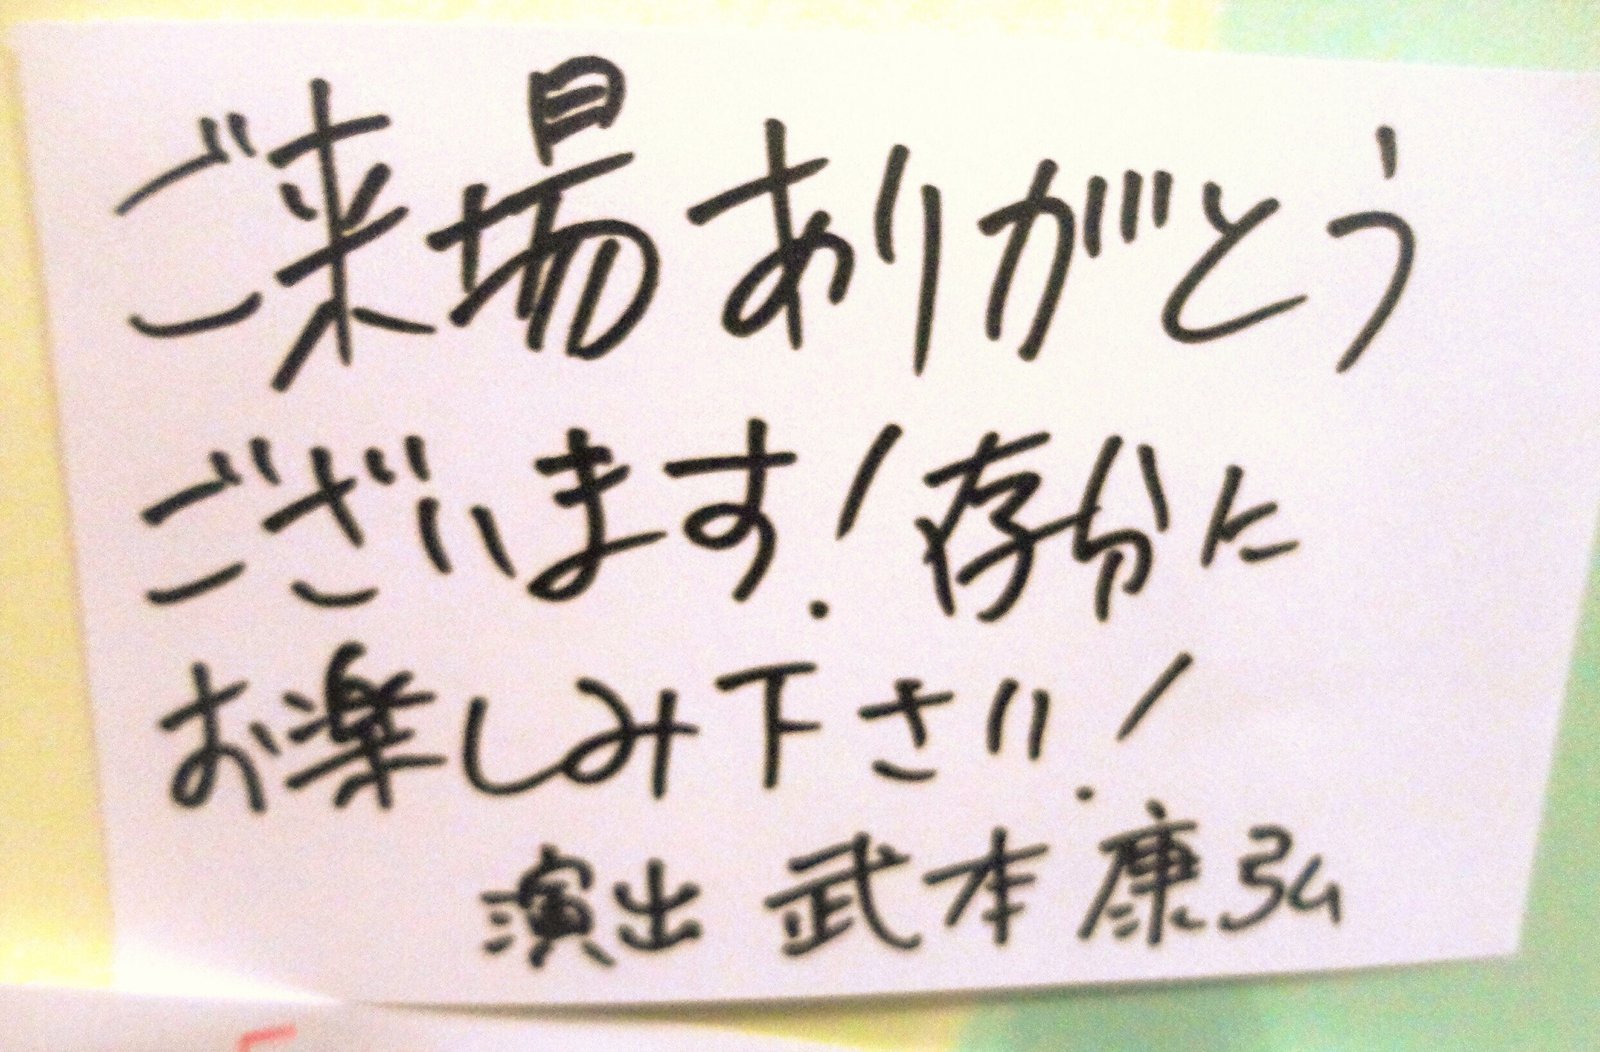 ご来場ありがとう
ございます！存分に
お楽しみ下さい！
演出 武本康弘